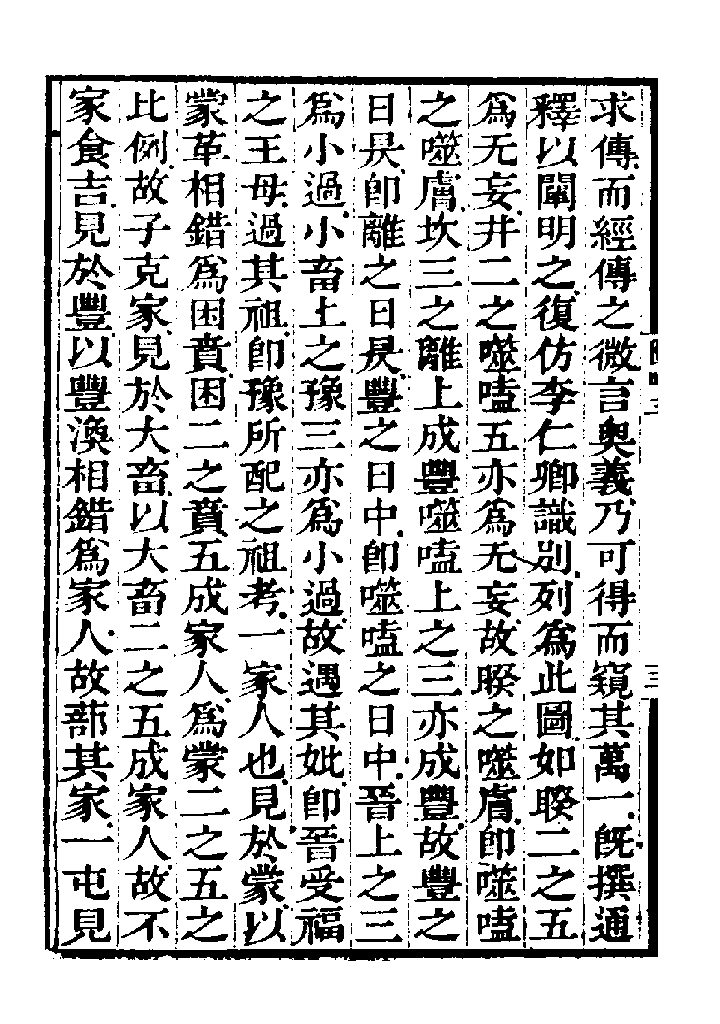 求傳而經傳之微言奧義乃可得而窺其萬一旣撰通
釋以闡明之復仿李仁卿識別列爲此圖如睽二之五
爲无妄井二之噬嗑五亦爲无妄故睽之噬膚卽噬嗑
之噬膚坎三之離上成豐噬嗑上之三亦成豐故豐之
日昃卽離之日昃豐之日中卽噬嗑之日中晉上之三
爲小過小畜上之豫三亦爲小過故遇其妣卽晉受福
之王母過其祖卽豫所配之祖考一家人也見於蒙以
蒙革相錯爲困賁困二之賁五成家人爲蒙二之五之
比例故子克家見於大畜以大畜二之五成家人故不
家食吉見於豐以豐渙相錯爲家人故蔀其家一屯見